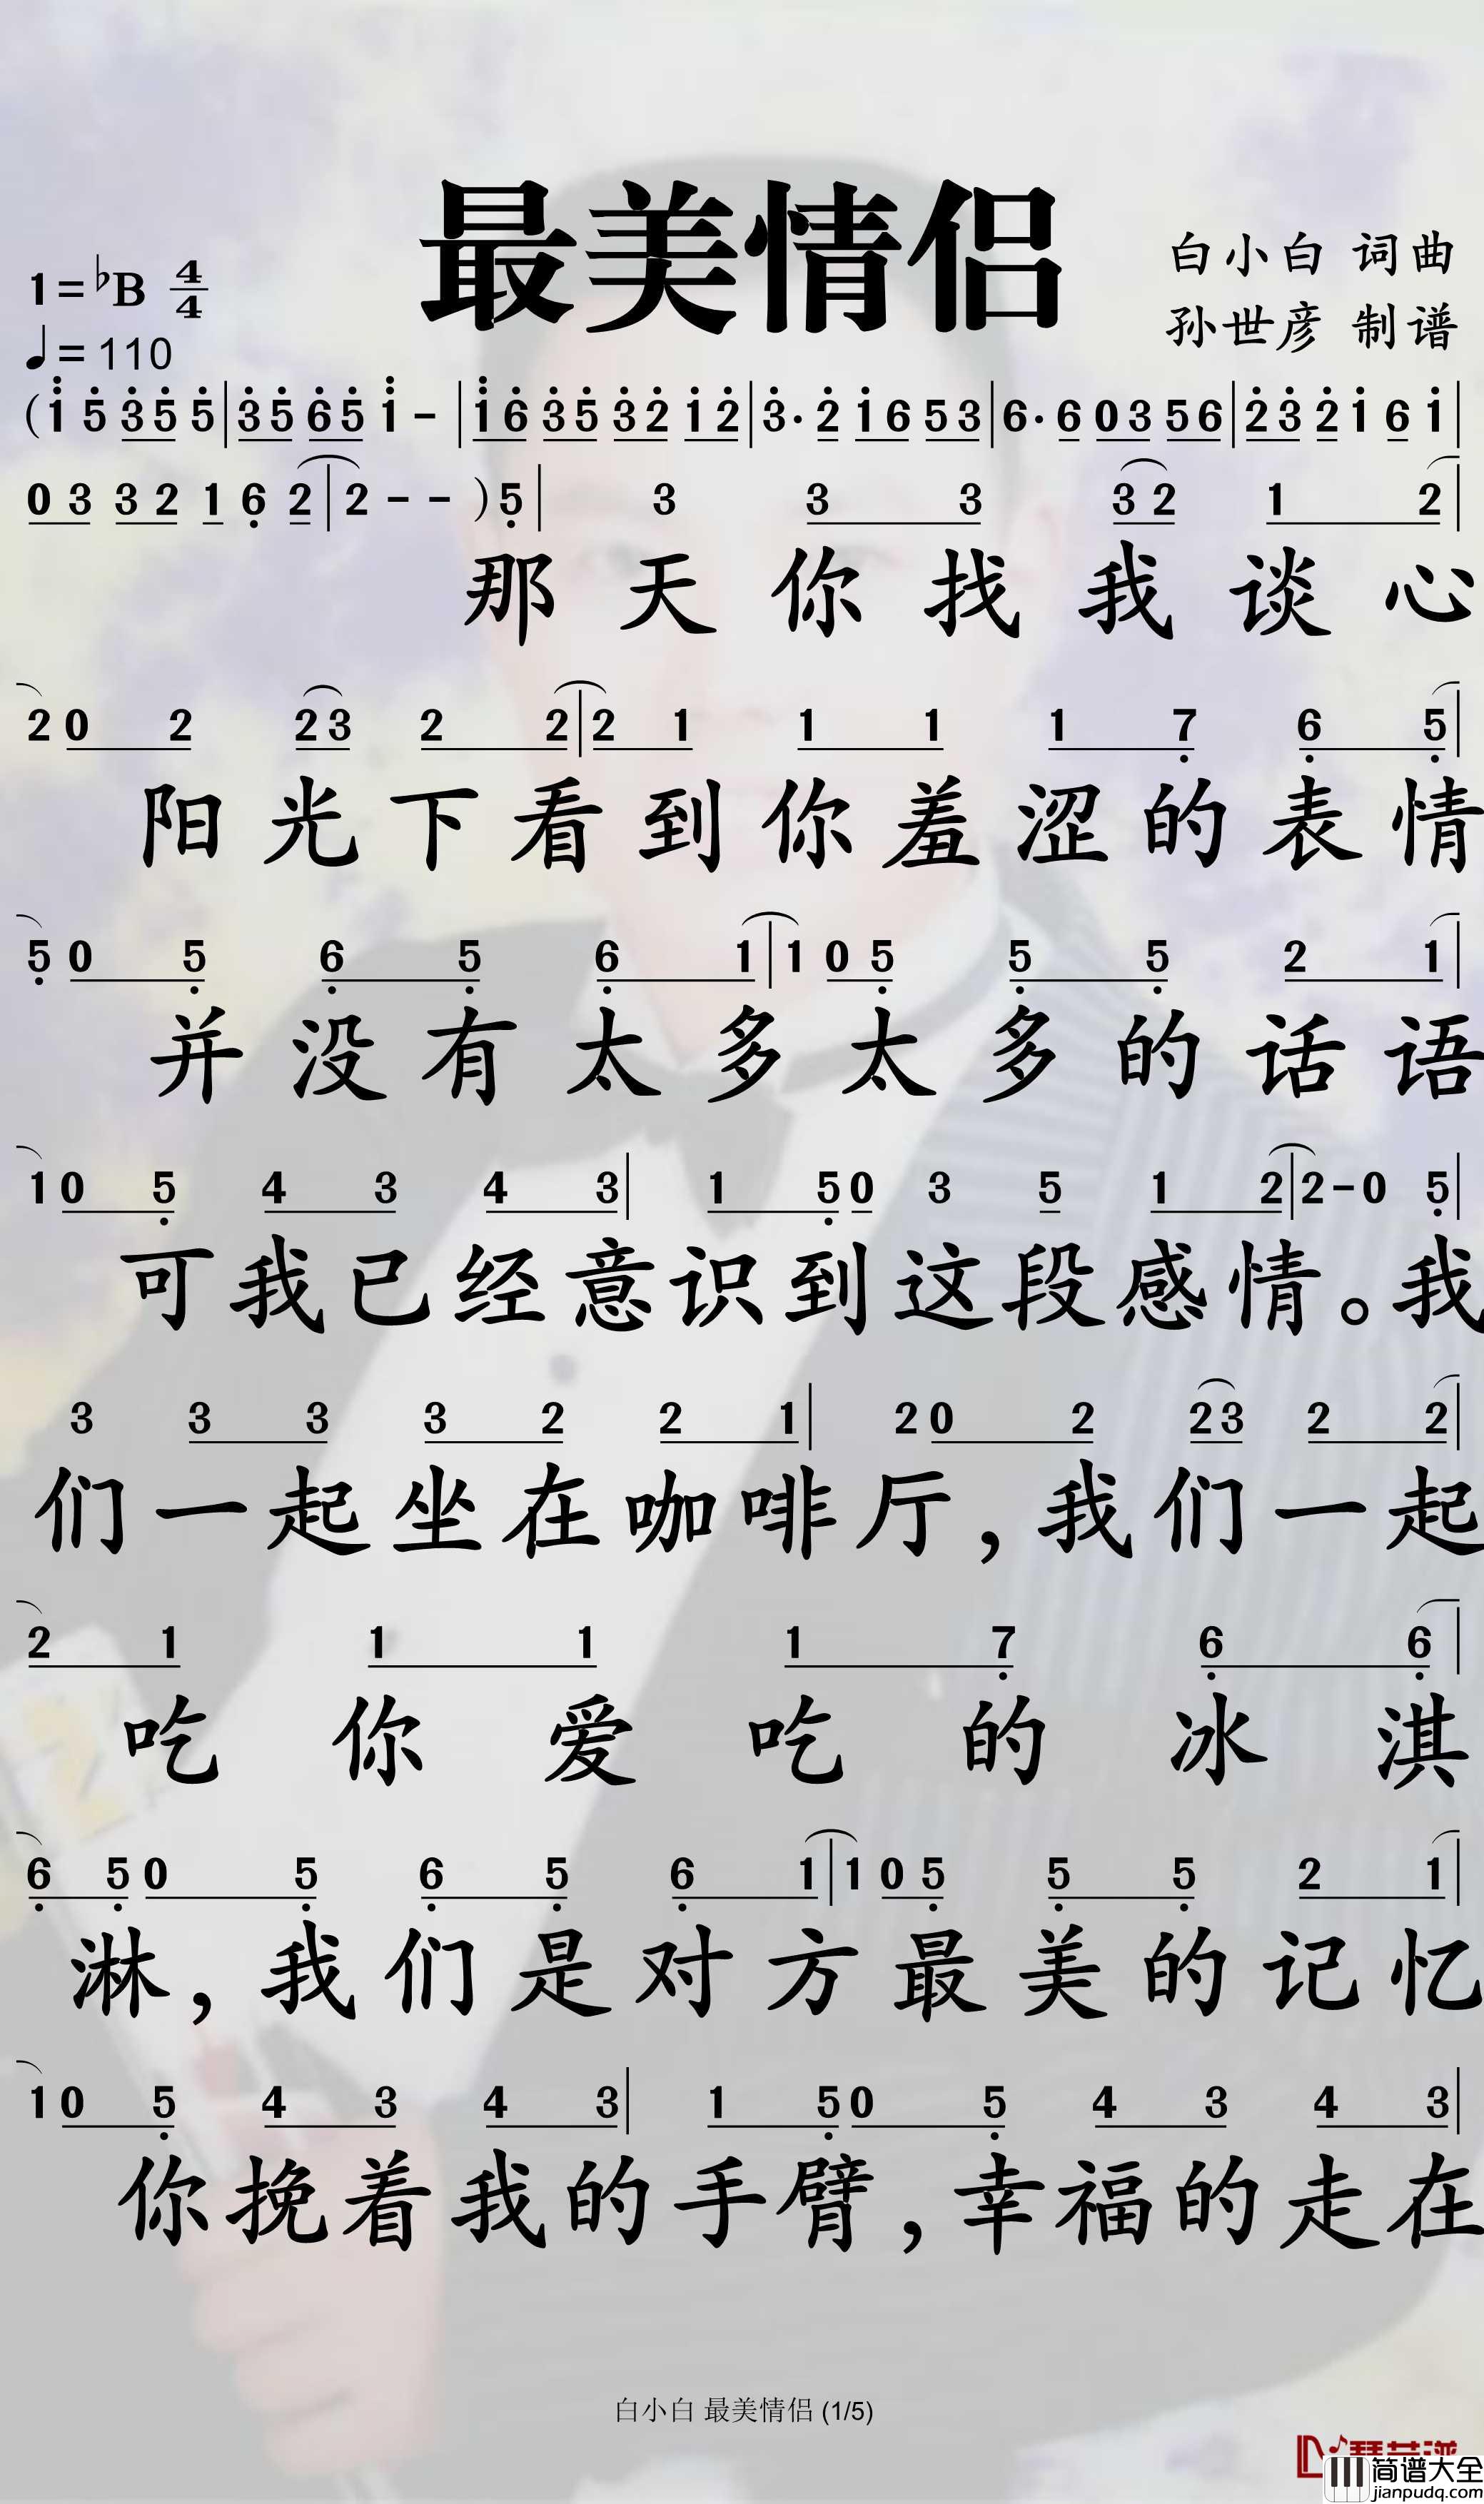 最美情侣
白小白 词曲
孙世彦 制谱
1=♭B 4/4
♩=110
(1 5 3 5 5|3 5 6 5 1 -|1 6 3 5 3 2 1 2|3· 2 1 6 5 3|6· 6 0 3 5 6|2 3 2 1 6 1|
0 3 3 2 1 6 2|2 - - )5|3 3 3 3 2 1 2|
那天你找我谈心
2 0 2 2 3 2 2|2 1 1 1 1 7 6 5|
阳光下看到你羞涩的表情
5 0 5 6 5 6 1|1 0 5 5 5 2 1|
并没有太多太多的话语
1 0 5 4 3 4 3|1 5 0 3 5 1 2|2 - 0 5|
可我已经意识到这段感情。我
3 3 3 3 2 2 1|2 0 2 2 3 2 2|
们一起坐在咖啡厅,我们一起
2 1 1 1 1 7 6 6|
吃你爱吃的冰淇
6 5 0 5 6 5 6 1|1 0 5 5 5 2 1|
淋,我们是对方最美的记忆
1 0 5 4 3 4 3|1 5 0 5 4 3 4 3|
你挽着我的手臂,幸福的走在
白小白 最美情侣 (1/5)
简谱大全
jianpudq.com